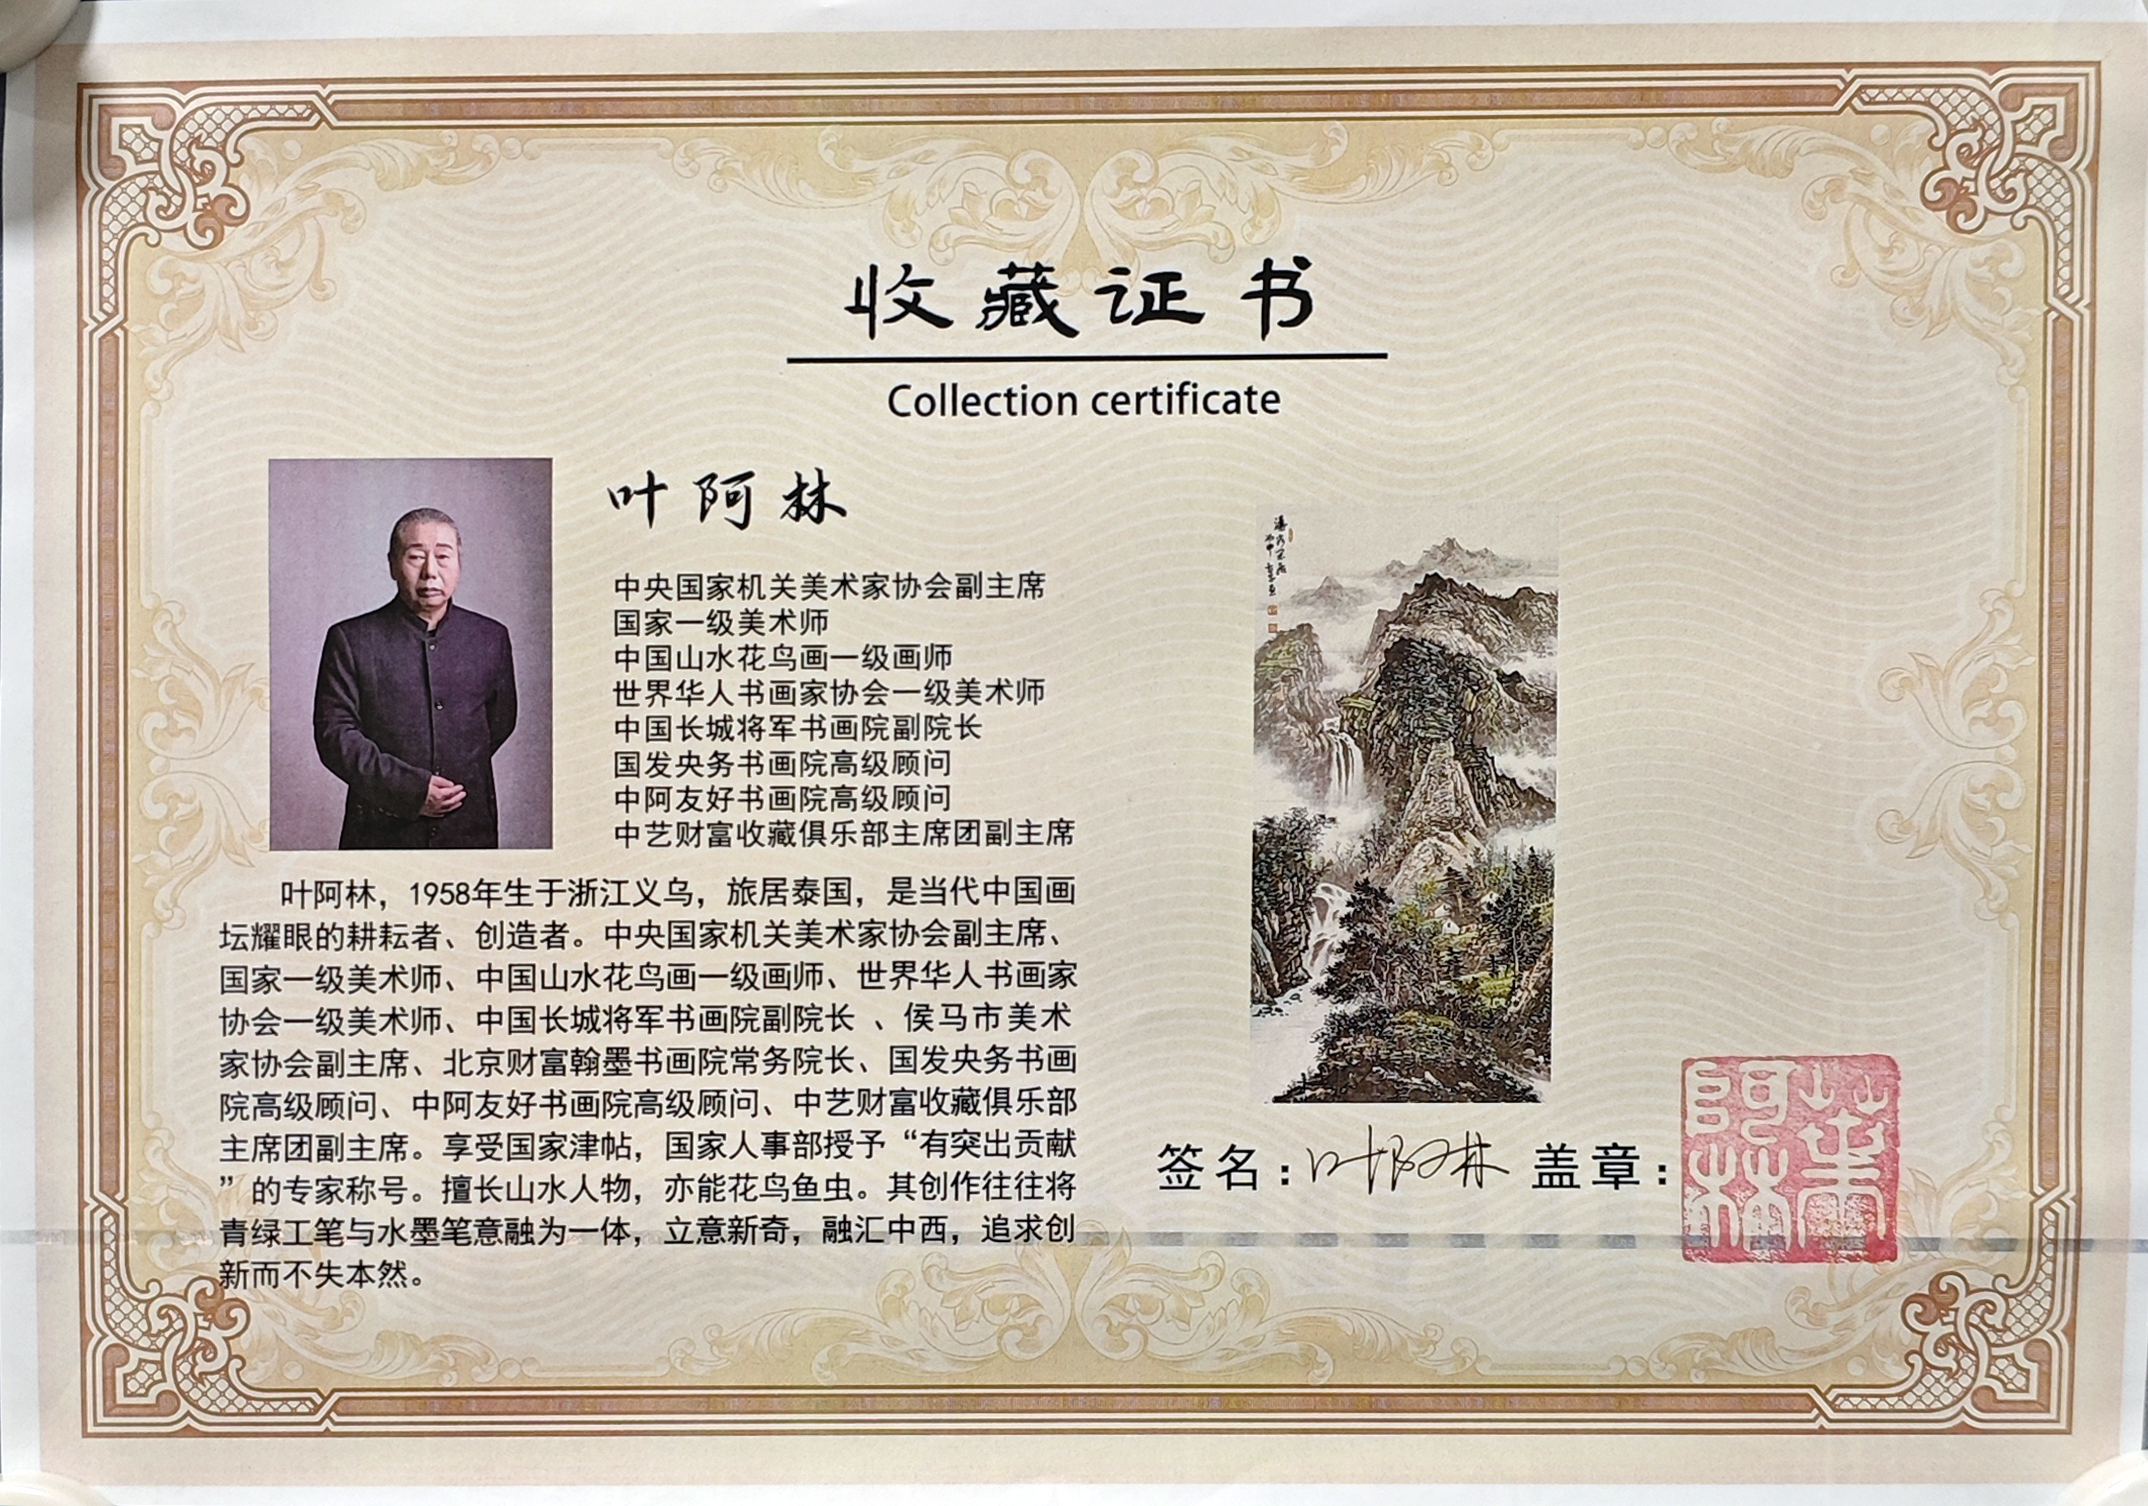 收藏证书
Collection certificate
叶阿林
中央国家机关美术家协会副主席
国家一级美术师
中国山水花鸟画一级画师
世界华人书画家协会一级美术师
中国长城将军书画院副院长
国发央务书画院高级顾问
中阿友好书画院高级顾问
中艺财富收藏俱乐部主席团副主席
叶阿林，1958年生于浙江义乌，旅居泰国，是当代中国画
坛耀眼的耕耘者、创造者。中央国家机关美术家协会副主席、
国家一级美术师、中国山水花鸟画一级画师、世界华人书画家
协会一级美术师、中国长城将军书画院副院长 、侯马市美术
家协会副主席、北京财富翰墨书画院常务院长、国发央务书画
院高级顾问、中阿友好书画院高级顾问、中艺财富收藏俱乐部
主席团副主席。享受国家津帖，国家人事部授予“有突出贡献
”的专家称号。擅长山水人物，亦能花鸟鱼虫。其创作往往将
青绿工笔与水墨笔意融为一体，立意新奇，融汇中西，追求创
新而不失本然。
签名：叶阿林 盖章：
葉阿林